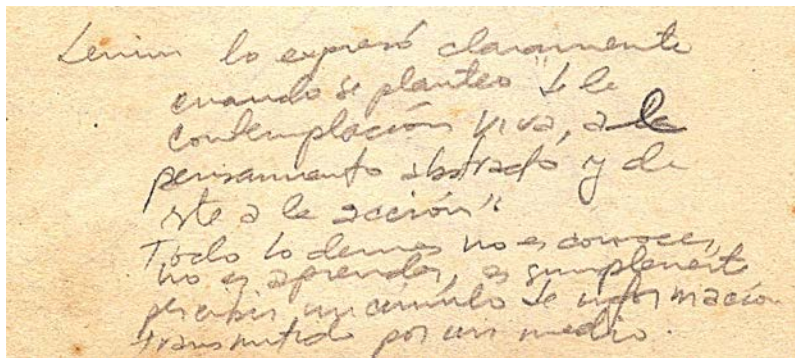 Lenin lo expresó claramente
cuando se planteo "de la
contemplación viva, a la
pensamiento abstracto, y de
este a la acción".
Todo lo demas no es conocer,
no es aprender, es simplemente
percibir un cúmulo de información
transmitido por un medio.